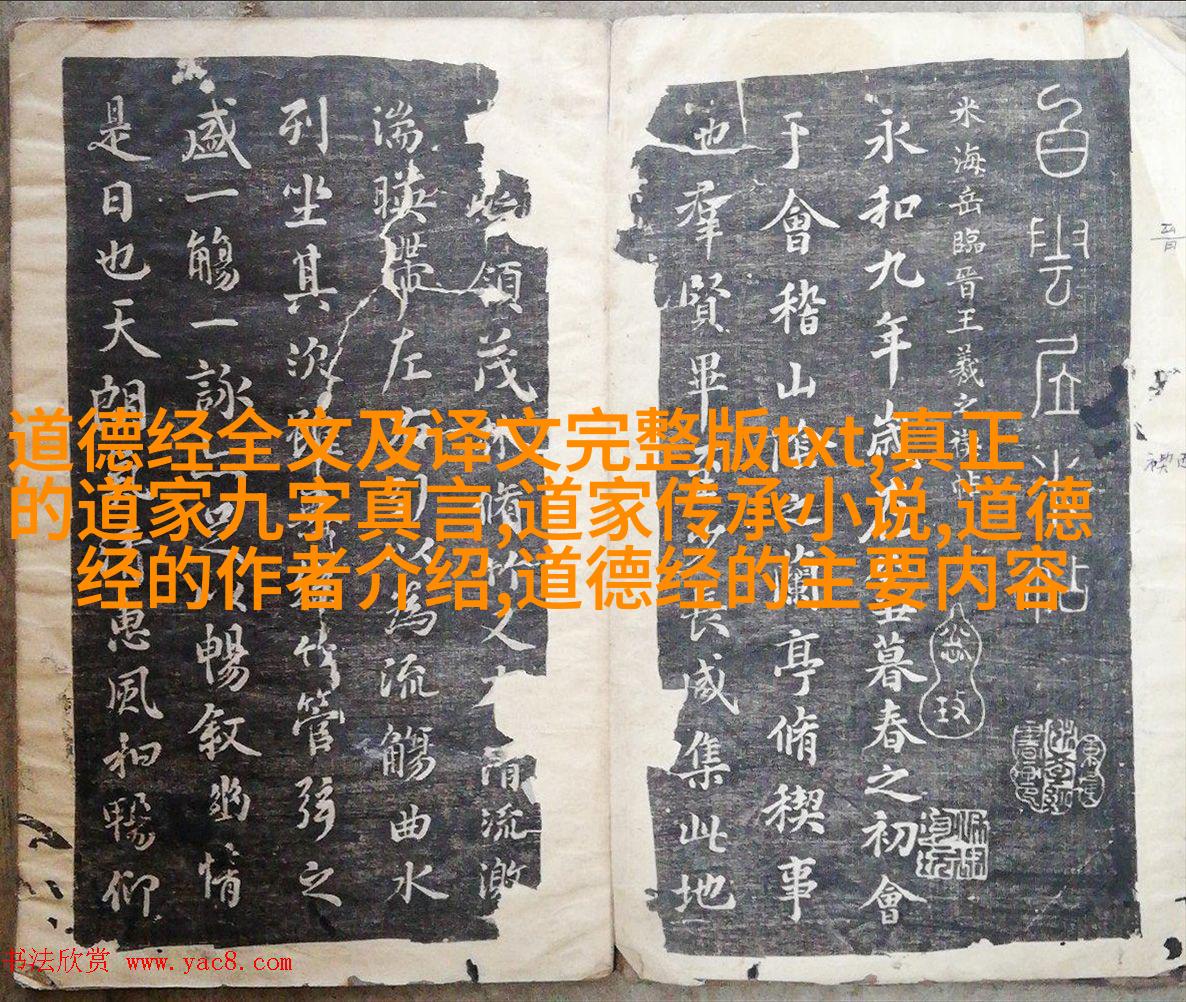 道德经全文及译文完整版txt,真正
的道家九字真言,道家传承小说,道德
经的作者介绍,道德经的主要内容
白雲居米帖
米海岳臨晉王羲之禊帖
永和九年歲在癸丑暮春之初會
于會稽山陰之蘭亭脩禊事
也羣賢畢至少長咸集此地
領茂林脩竹又有清流激
湍暎帶左右引以為流觴曲水
列坐其次雖無絲竹管弦之
盛一觴一詠足以暢敘幽情
是日也天朗氣清惠風和暢仰
书法欣赏 www.yac8.com